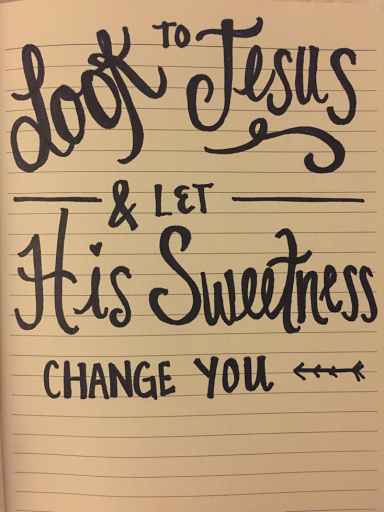 Look TO Jesus
& LET
His Sweetness
CHANGE YOU